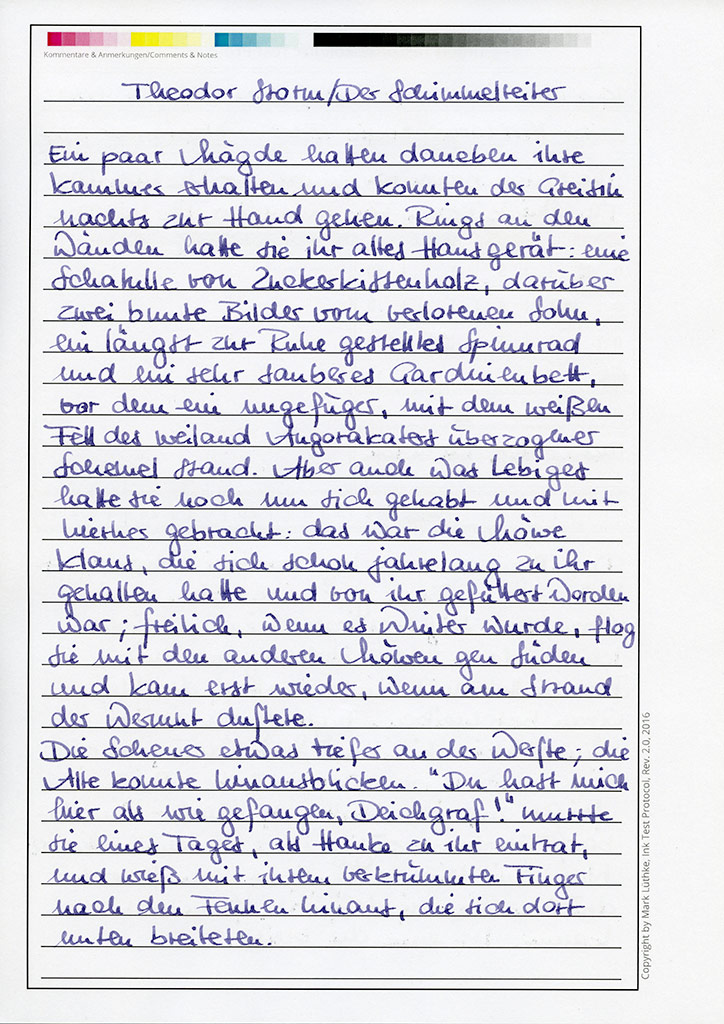 Kommentare & Anmerkungen/Comments & Notes
Theodor Storm/Der Schimmelreiter
Ein paar Mägde hatten daneben ihre
Kammer erhalten und konnten der Greisin
nachts zur Hand gehen. Rings an den
Wänden hatte sie ihr altes Hausgerät: eine
Schatulle von Zuckerkistenholz, darüber
zwei bunte Bilder vom verlorenen Sohn,
ein längst zur Ruhe gestelltes Spinnrad
und ein sehr sauberes Gardinenbett,
vor dem ein ungefüger, mit dem weißen
Fell des weiland Angorakaters überzogner
Schemel stand. Aber auch was Lebiges
hatte sie noch um sich gehabt und mit
hierher gebracht: das war die Möwe
Klaus, die sich schon jahrelang zu ihr
gehalten hatte und von ihr gefüttert worden
war; freilich, wenn es Winter wurde, flog
sie mit den anderen Möwen gen Süden
und kam erst wieder, wenn am Strand
der Wermut duftete.
Die Scheuer etwas tiefer an der Werfte; die
Alte konnte hinausblicken. "Du hast mich
hier als wie gefangen, Deichgraf!" murrte
sie eines Tages, als Hauke zu ihr eintrat,
und wieß mit ihrem verkrümmten Finger
nach den Fennen hinaus, die sich dort
unten breiteten.
Copyright by Mark Lüthke, Ink Test Protocol, Rev. 2.0, 2016